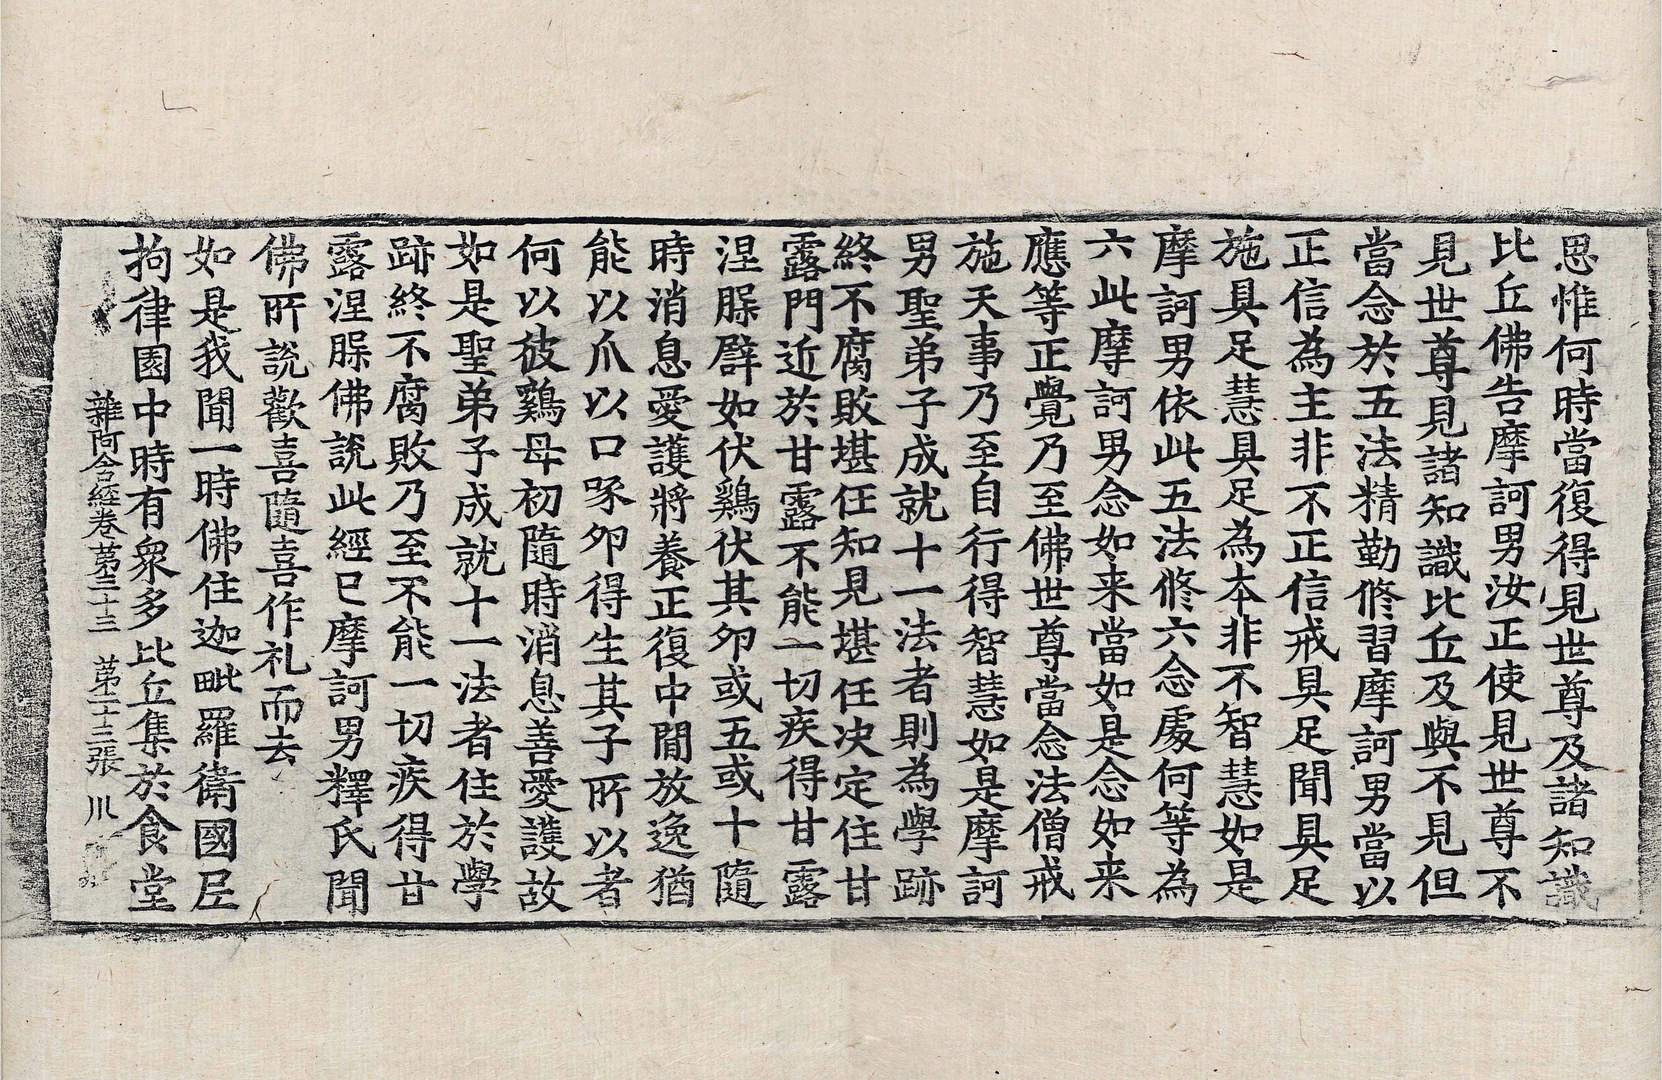 思惟何時當復得見世尊及諸知識
比丘佛告摩訶男汝正使見世尊不
見世尊見諸知識比丘及與不見但
當念於五法精勤修習摩訶男當以
正信為主非不正信戒具足聞具足
施具足慧具足為本非不智慧如是
摩訶男依此五法修六念處何等為
六此摩訶男念如来當如是念如来
應等正覺乃至佛世尊當念法僧戒
施天事乃至自行得智慧如是摩訶
男聖弟子成就十一法者則為學跡
終不腐敗堪任知見堪任決定住甘
露門近於甘露不能一切疾得甘露
涅槃譬如伏鷄伏其卵或五或十隨
時消息愛護將養正復中閒放逸猶
能以爪以口啄卵得生其子所以者
何以彼鷄母初隨時消息善愛護故
如是聖弟子成就十一法者住於學
跡終不腐敗乃至不能一切疾得甘
露涅槃佛說此經已摩訶男釋氏聞
佛所說歡喜隨喜作礼而去
如是我聞一時佛住迦毗羅衛國尼
拘律園中時有衆多比丘集於食堂
雜阿含經卷第三十三　第二十三張　川